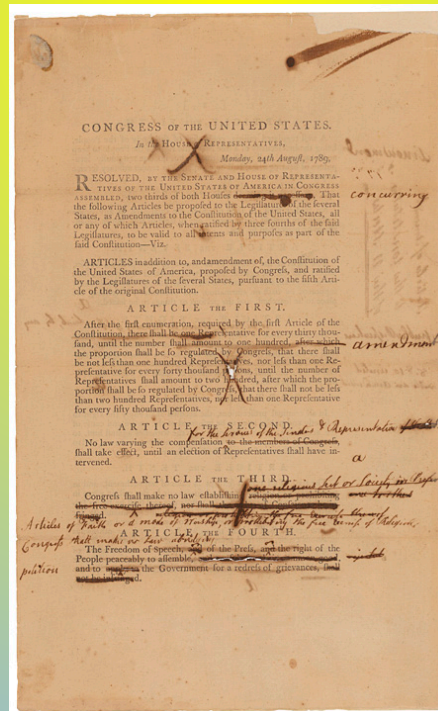 CONGRESS OF THE UNITED STATES.
In the HOUSE of REPRESENTATIVES,
Monday, 24th August, 1789,
RESOLVED, BY THE SENATE AND HOUSE OF REPRESENTA-
TIVES OF THE UNITED STATES OF AMERICA IN CONGRESS
ASSEMBLED, two thirds of both Houses That concurring
the following Articles be proposed to the Legislatures of the several
States, as Amendments to the Constitution of the United States, all
or any of which Articles, when ratified by three fourths of the said
Legislatures, to be valid to all intents and purposes as part of the
said Constitution—Viz.
ARTICLES in addition to, and amendment of, the Constitution of
the United States of America, proposed by Congress, and ratified
by the Legislatures of the several States, pursuant to the fifth Arti-
cle of the original Constitution.
ARTICLE THE FIRST.
After the first enumeration, required by the first Article of the
Constitution, there shall be one Representative for every thirty thou-
sand, until the number shall amount to one hundred, after which amendment
the proportion shall be so regulated by Congress, that there shall
be not less than one hundred Representatives, nor less than one Re-
presentative for every forty thousand persons, until the number of
Representatives shall amount to two hundred, after which the pro-
portion shall be so regulated by Congress, that there shall not be less
than two hundred Representatives, nor less than one Representative
for every fifty thousand persons.
ARTICLE THE SECOND.
for the service of the Senators & Representatives
No law varying the compensation to the members of Congress,
shall take effect, until an election of Representatives shall have in-
tervened.
a
ARTICLE THE THIRD.
one religious Sect or Society in
Congress shall make no law establishing religion or
the free exercise thereof, nor shall
Articles of Faith or a mode of Worship, or prohibiting the free exercise of Religion,
ARTICLE THE FOURTH.
Congress shall make no law abridging
The Freedom of Speech, of the Press, and the right of the
People peaceably to assemble,
petition and to the Government for a redress of grievances, shall
not be infringed.